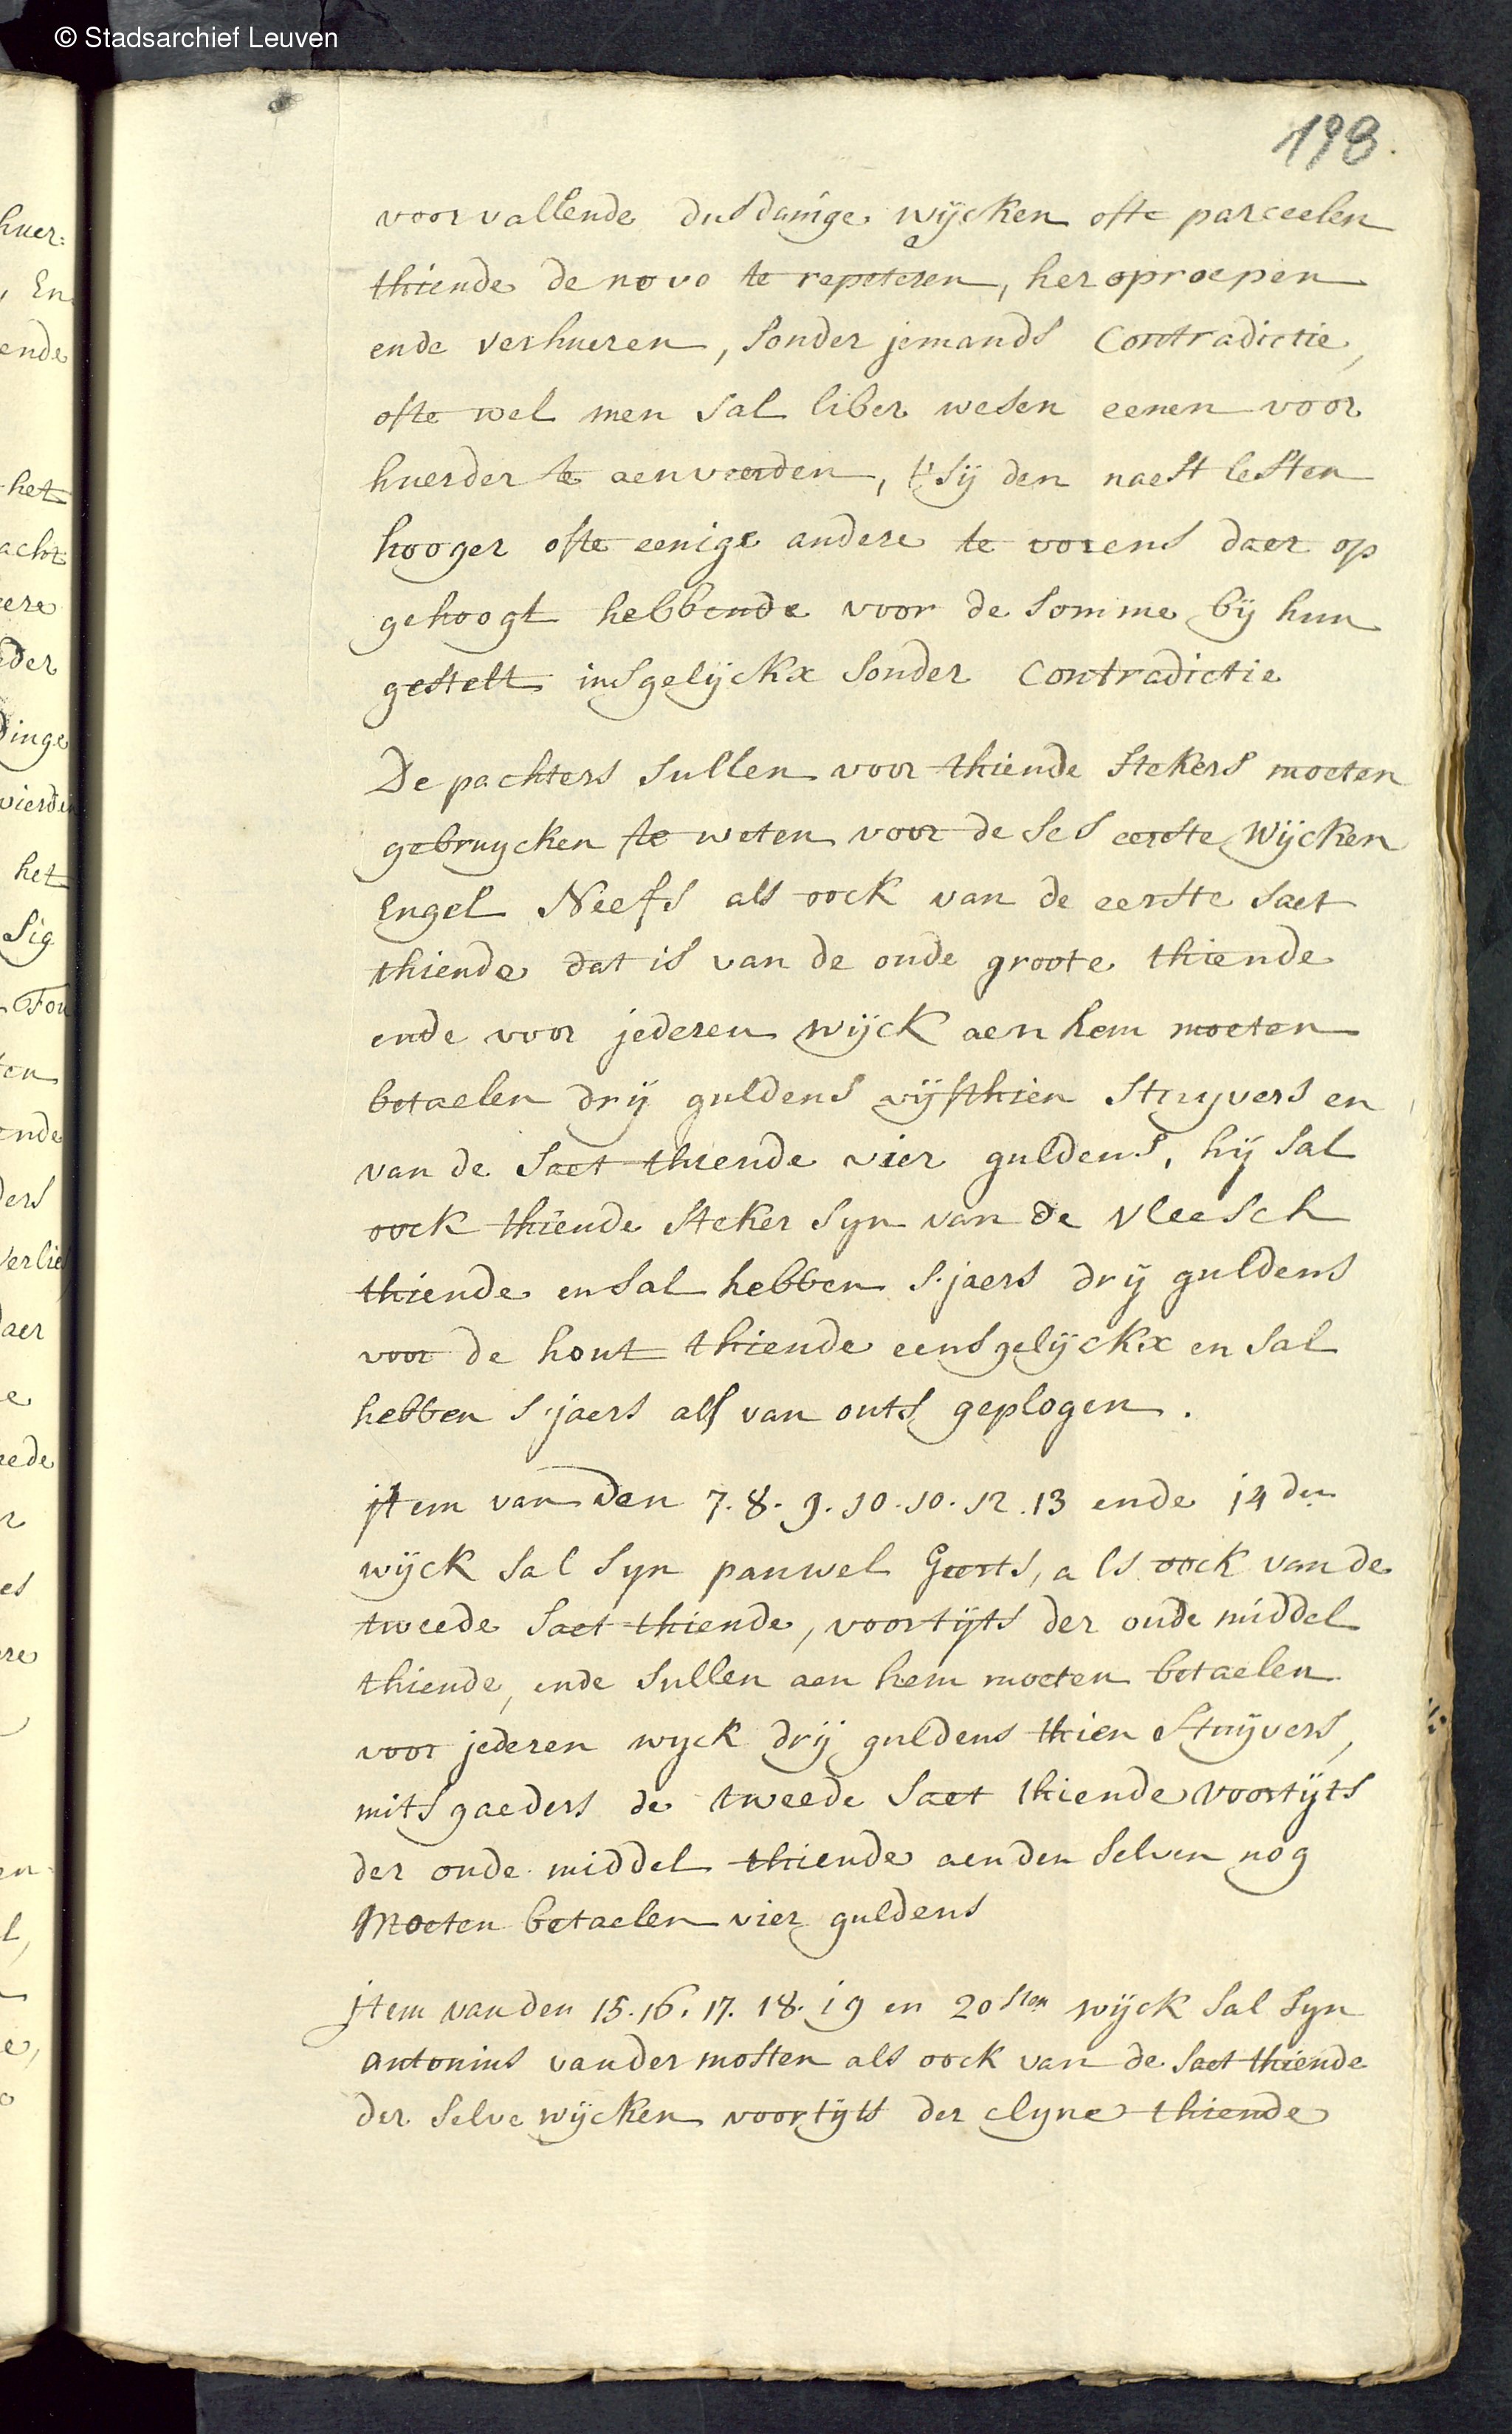 © Stadsarchief Leuven
198.
voorvallende dusdanige wijcken ofte parceelen
thiende de novo te repeteren, her oproepen
ende verhueren, sonder jemands Contradictie,
ofte wel men sal liber wesen eenen voor
huerder te aenveerden, t'sij den naest lesten
hooger ofte eenige andere te vorens daer op
gehoogt hebbende voor de somme bij hun
gestelt insgelijckx sonder Contradictie
De pachters sullen voor thiende stekers moeten
gebruycken te weten voor de ses eerste wijcken
Engel Neefs als oock van de eerste saet
thiende dat is van de oude groote thiende
ende voor jederen wijck aen hem moeten
betaelen drij guldens vijfthien stuyvers en
van de saet thiende vier guldens, hij sal
oock thiende steker syn van de vleesch
thiende en sal hebben s'jaers drij guldens
voor de hout thiende eensgelijckx en sal
hebben s'jaers als van outs geplogen.
jtem van den 7. 8. 9. 10. 10. 12. 13 ende 14den
wijck sal syn pauwel Geerts, als oock van de
tweede saet thiende, voortijts der oude middel
thiende, ende sullen aen hem moeten betaelen
voor jederen wyck drij guldens thien stuijvers,
mitsgaeders de tweede saet thiende voortijts
der oude middel thiende aen den selven nog
Moeten betaelen vier guldens
jtem van den 15. 16. 17. 18. 19 en 20sten wijck sal syn
antonius vander mosten als oock van de saet thiende
der selve wijcken voortijts der clyne thiende
huer:
, En
ende
het
acht
eere
eder
dinge
vierde
het
sig
ten
ende
ders
verlie
daer
e
rede
r
es
ere
en
l,
e,